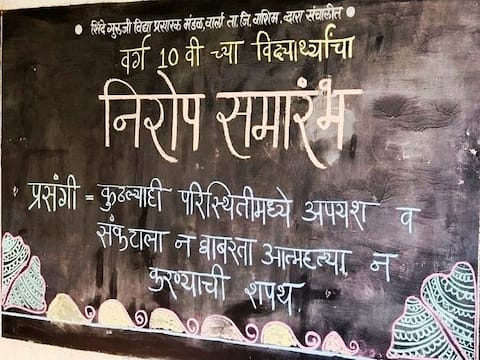 शिंदे गुरुजी विद्या प्रसारक मंडळ, वार्ला ता.जि. वाशिम, द्वारा संचालीत
वर्ग 10 वी च्या विद्यार्थ्यांचा
निरोप समारंभ
प्रसंगी = कुठल्याही परिस्थितीमध्ये अपयश व
संकटाला न घाबरता आत्महत्या न
करण्याची शपथ